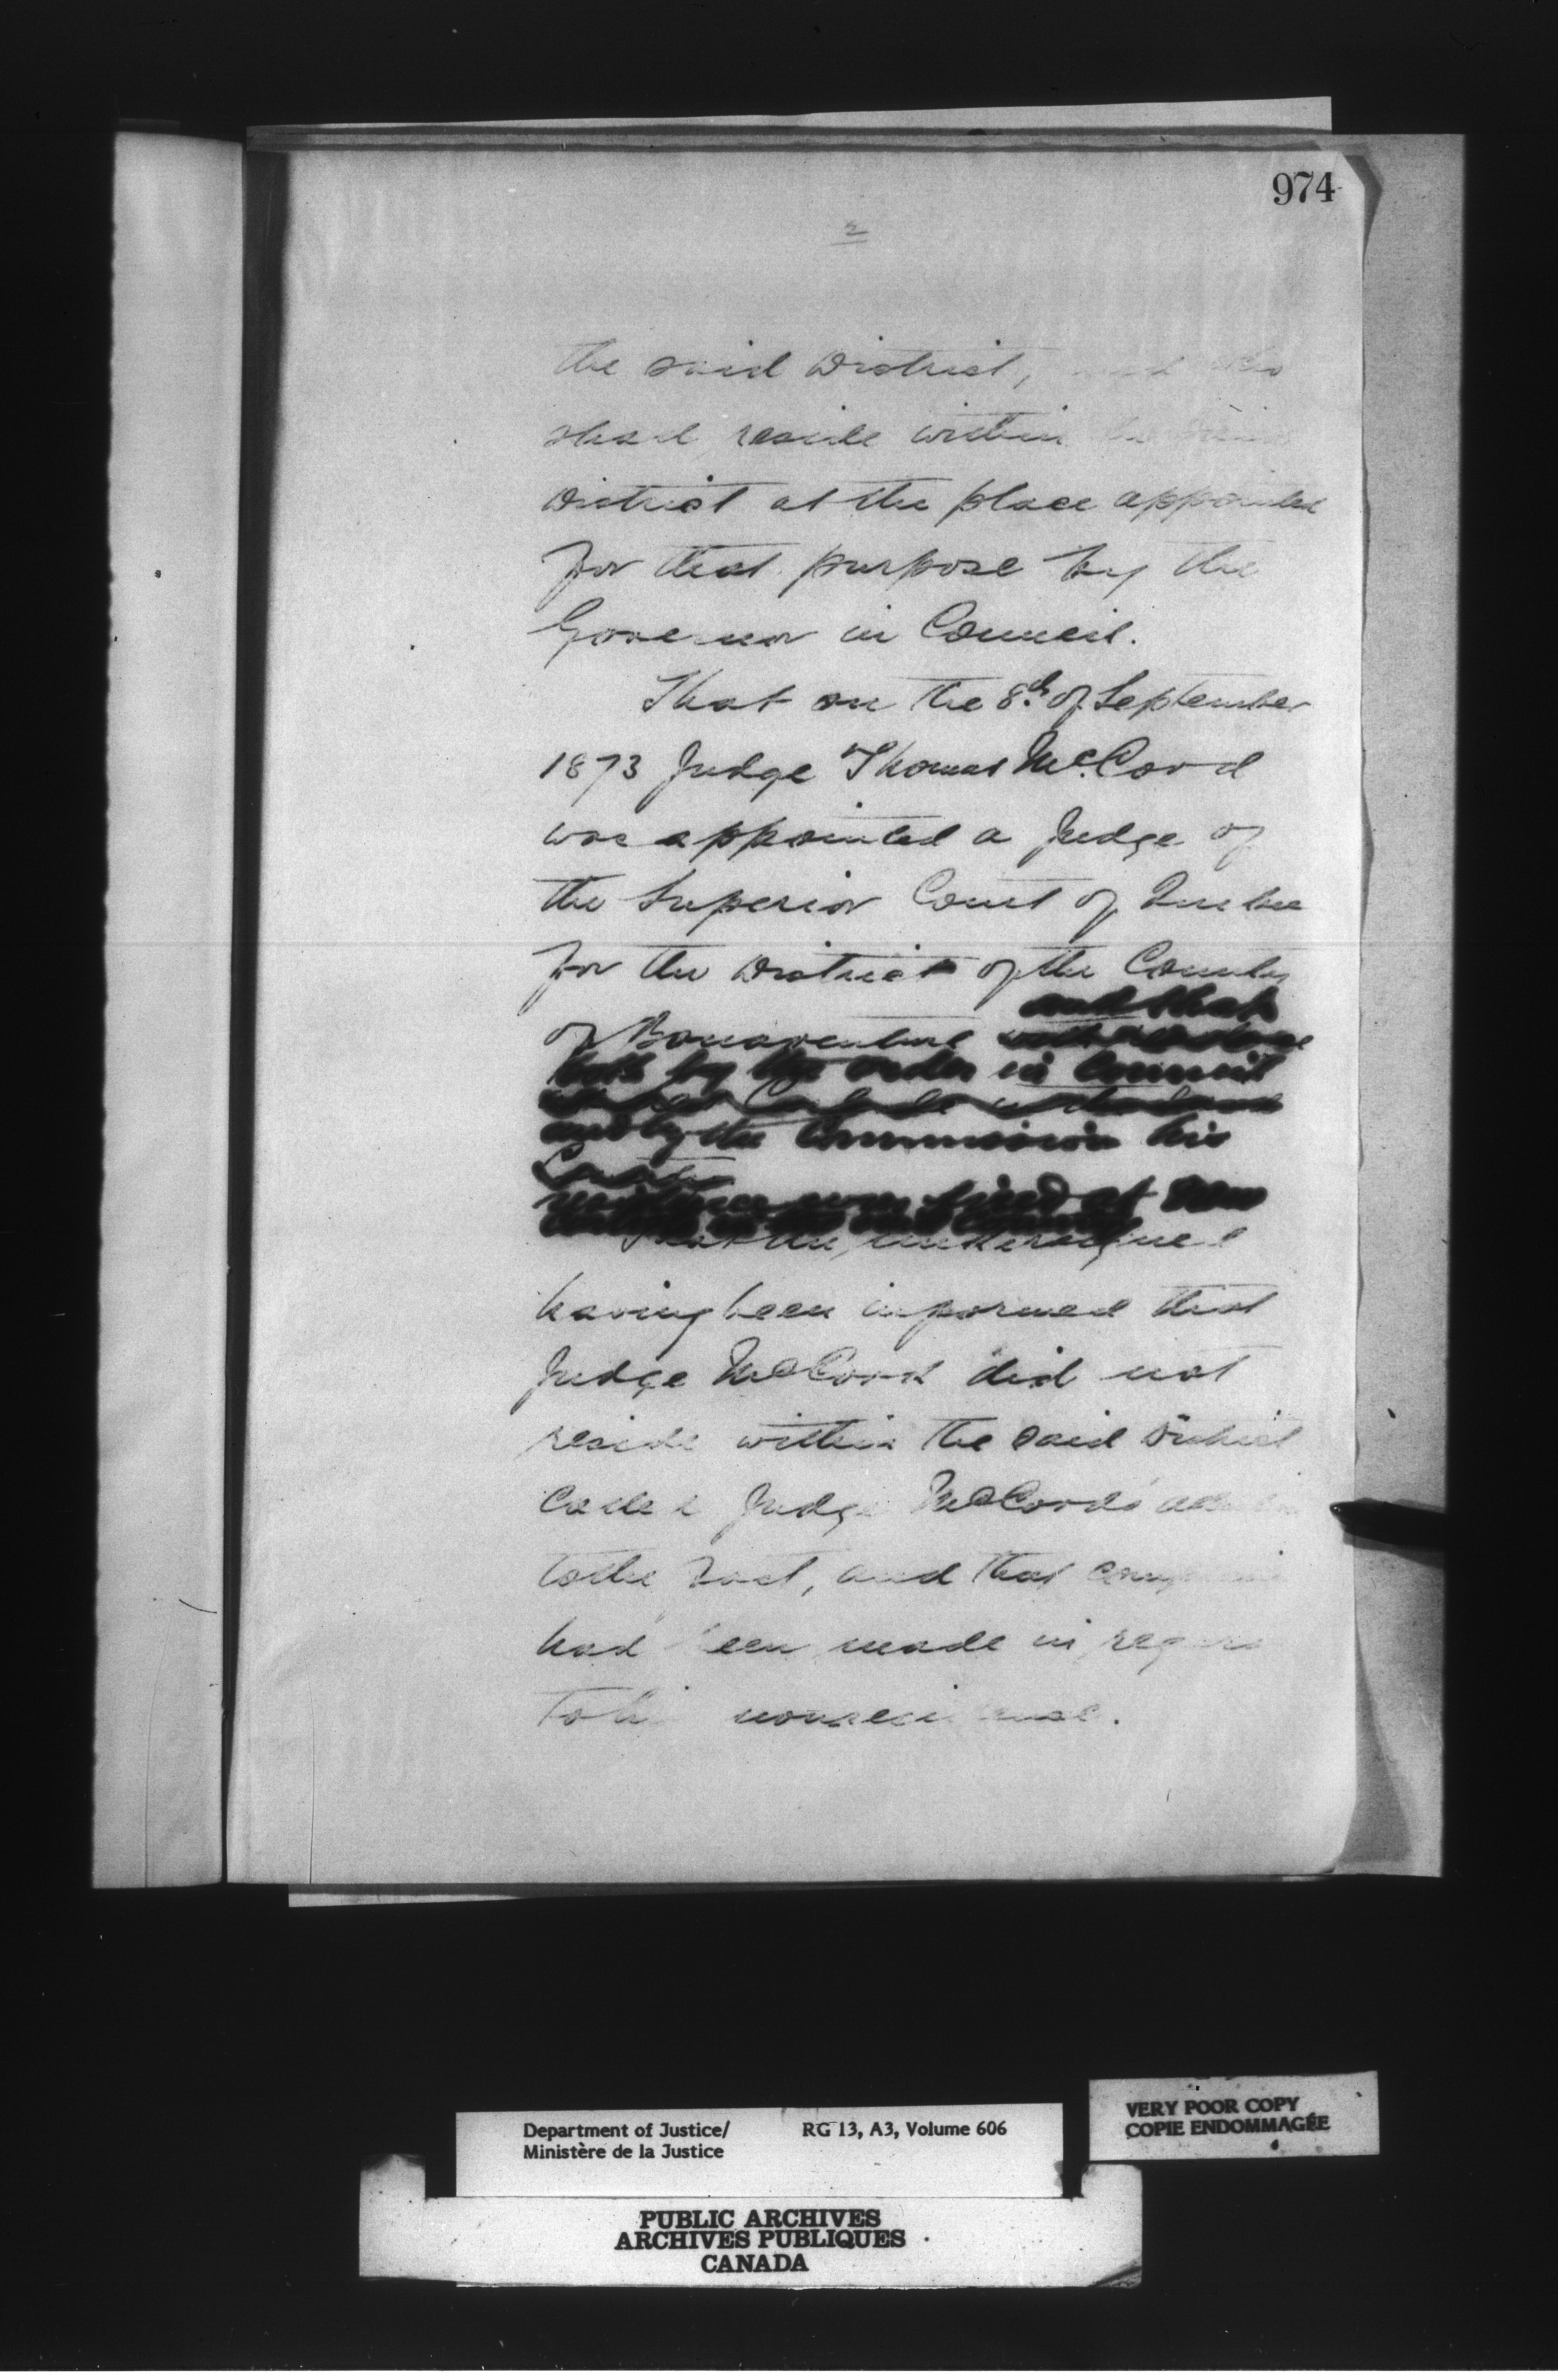 974
2
the said District,
shall reside within
District at the place appointed
for that purpose by the
Governor in Council.
That on the 8th of September
1873 Judge Thomas McCord
was appointed a Judge of
the Superior Court of Quebec
for the District of the County
and that
of Bonaventure
both by the order in Council
and by the Commission his
residence was fixed at New
Carlisle in the said County
That the undersigned
having been informed that
Judge McCord did not
reside within the said District
called Judge McCord's
to the fact, and that
had been made in regard
to his nonresidence.
Department of Justice/ RG 13, A3, Volume 606
Ministère de la Justice
VERY POOR COPY
COPIE ENDOMMAGÉE
PUBLIC ARCHIVES
ARCHIVES PUBLIQUES
CANADA